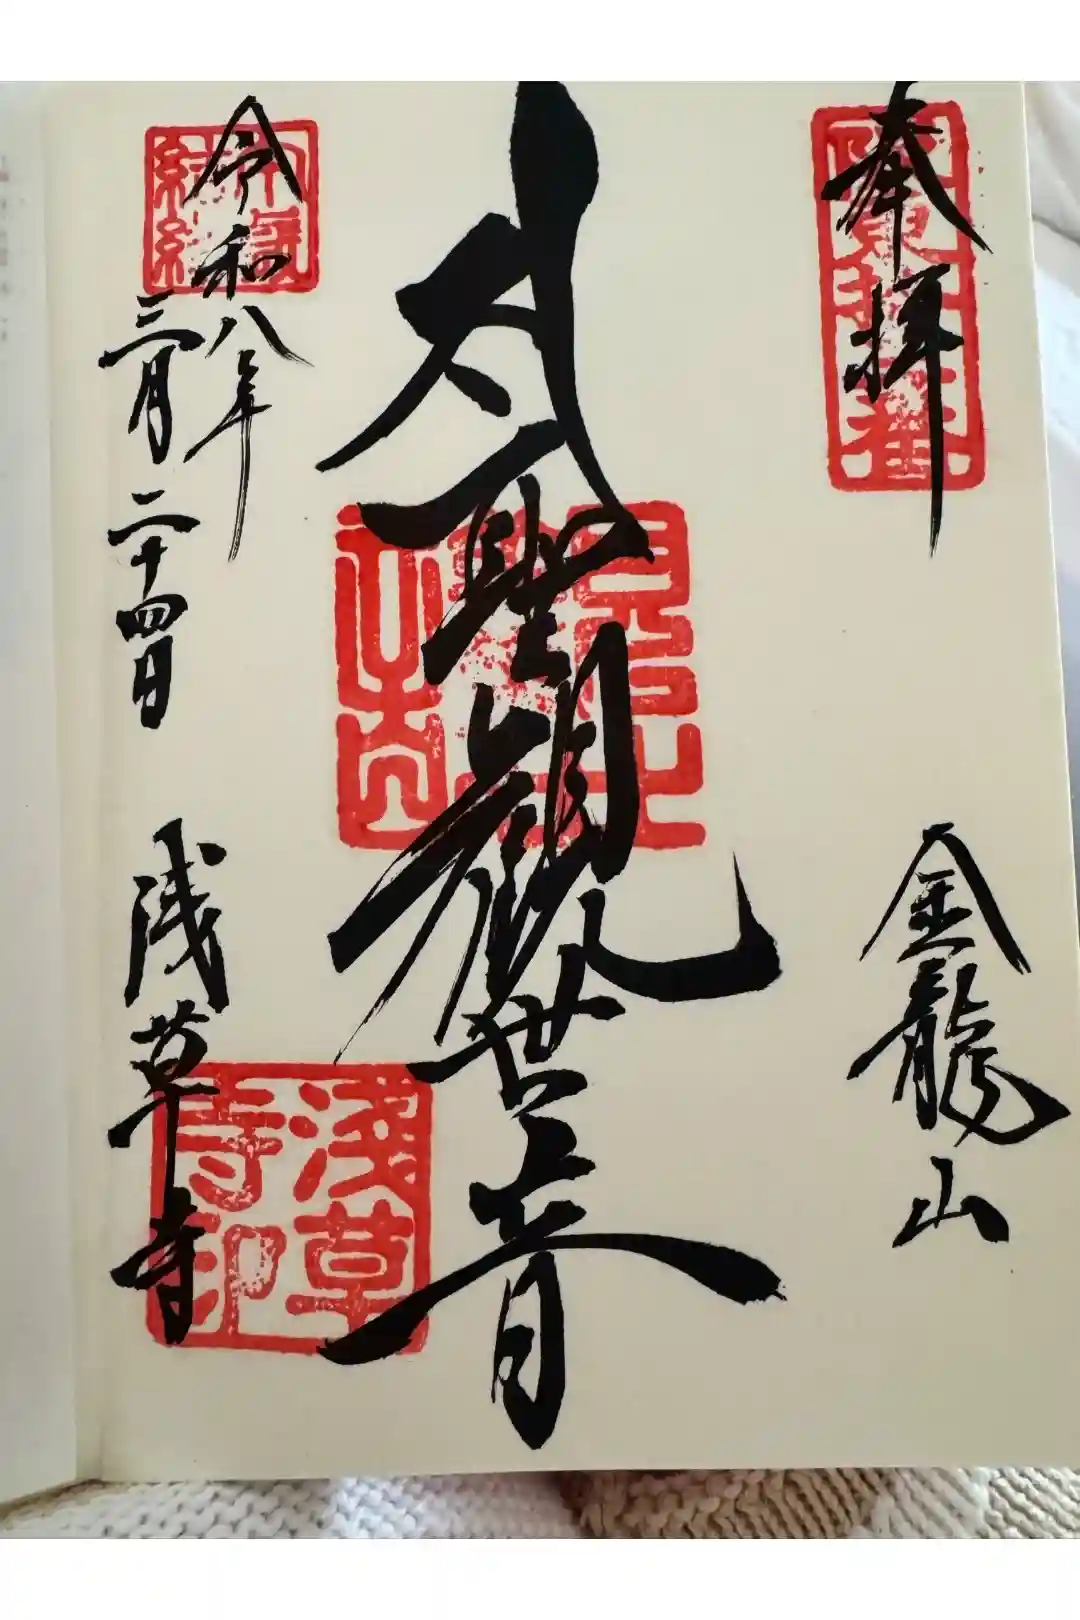 奉拝
金龍山
聖観世音
令和八年
三月二十四日
浅草寺
淺草寺印